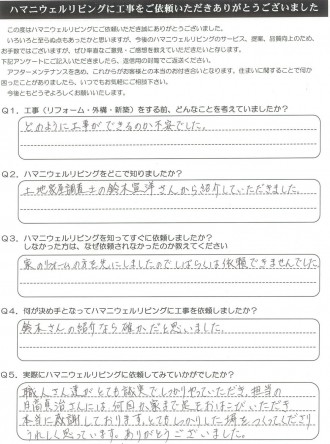 ハマニウェルリビングに工事をご依頼いただきありがとうございました
この度はハマニウェルリビングにご依頼いただき誠にありがとうございました。
いろいろと至らぬ点もあったかと思いますが、今後のハマニウェルリビングのサービス、提案、品質向上のため、
お手数ではございますが、ぜひ率直なご意見・ご感想を教えていただきたいと存じます。
下記アンケートにご記入いただきましたら、返信用の封筒でご返送ください。
アフターメンテナンスを含め、これからがお客様との本当のお付き合いとなります。住まいに関することで何か
困ったことがありましたら、いつでもお気軽にご相談下さい。
今後ともどうぞよろしくお願いいたします。
Q1、工事（リフォーム・外構・新築）をする前、どんなことを考えていましたか？
どのように工事ができるのか不安でした。
Q2、ハマニウェルリビングをどこで知りましたか？
土地家屋調査士の鈴木宣洋さんから紹介していただきました。
Q3、ハマニウェルリビングを知ってすぐに依頼しましたか？
しなかった方は、なぜ依頼されなかったのか教えてください
家のリフォームの方を先にしましたのでしばらくは依頼できませんでした
Q4、何が決め手となってハマニウェルリビングに工事を依頼しましたか？
鈴木さんの紹介なら確かだと思いました。
Q5、実際にハマニウェルリビングに依頼してみていかがでしたか？
職人さん達がとても誠実でしっかりやっていただき、担当の
日高貞治さんには、何回か家まで足をおはこびいただき
本当に感謝しております。とてもしっかりした塀をつくってくださり
うれしく思っています。ありがとうございました。